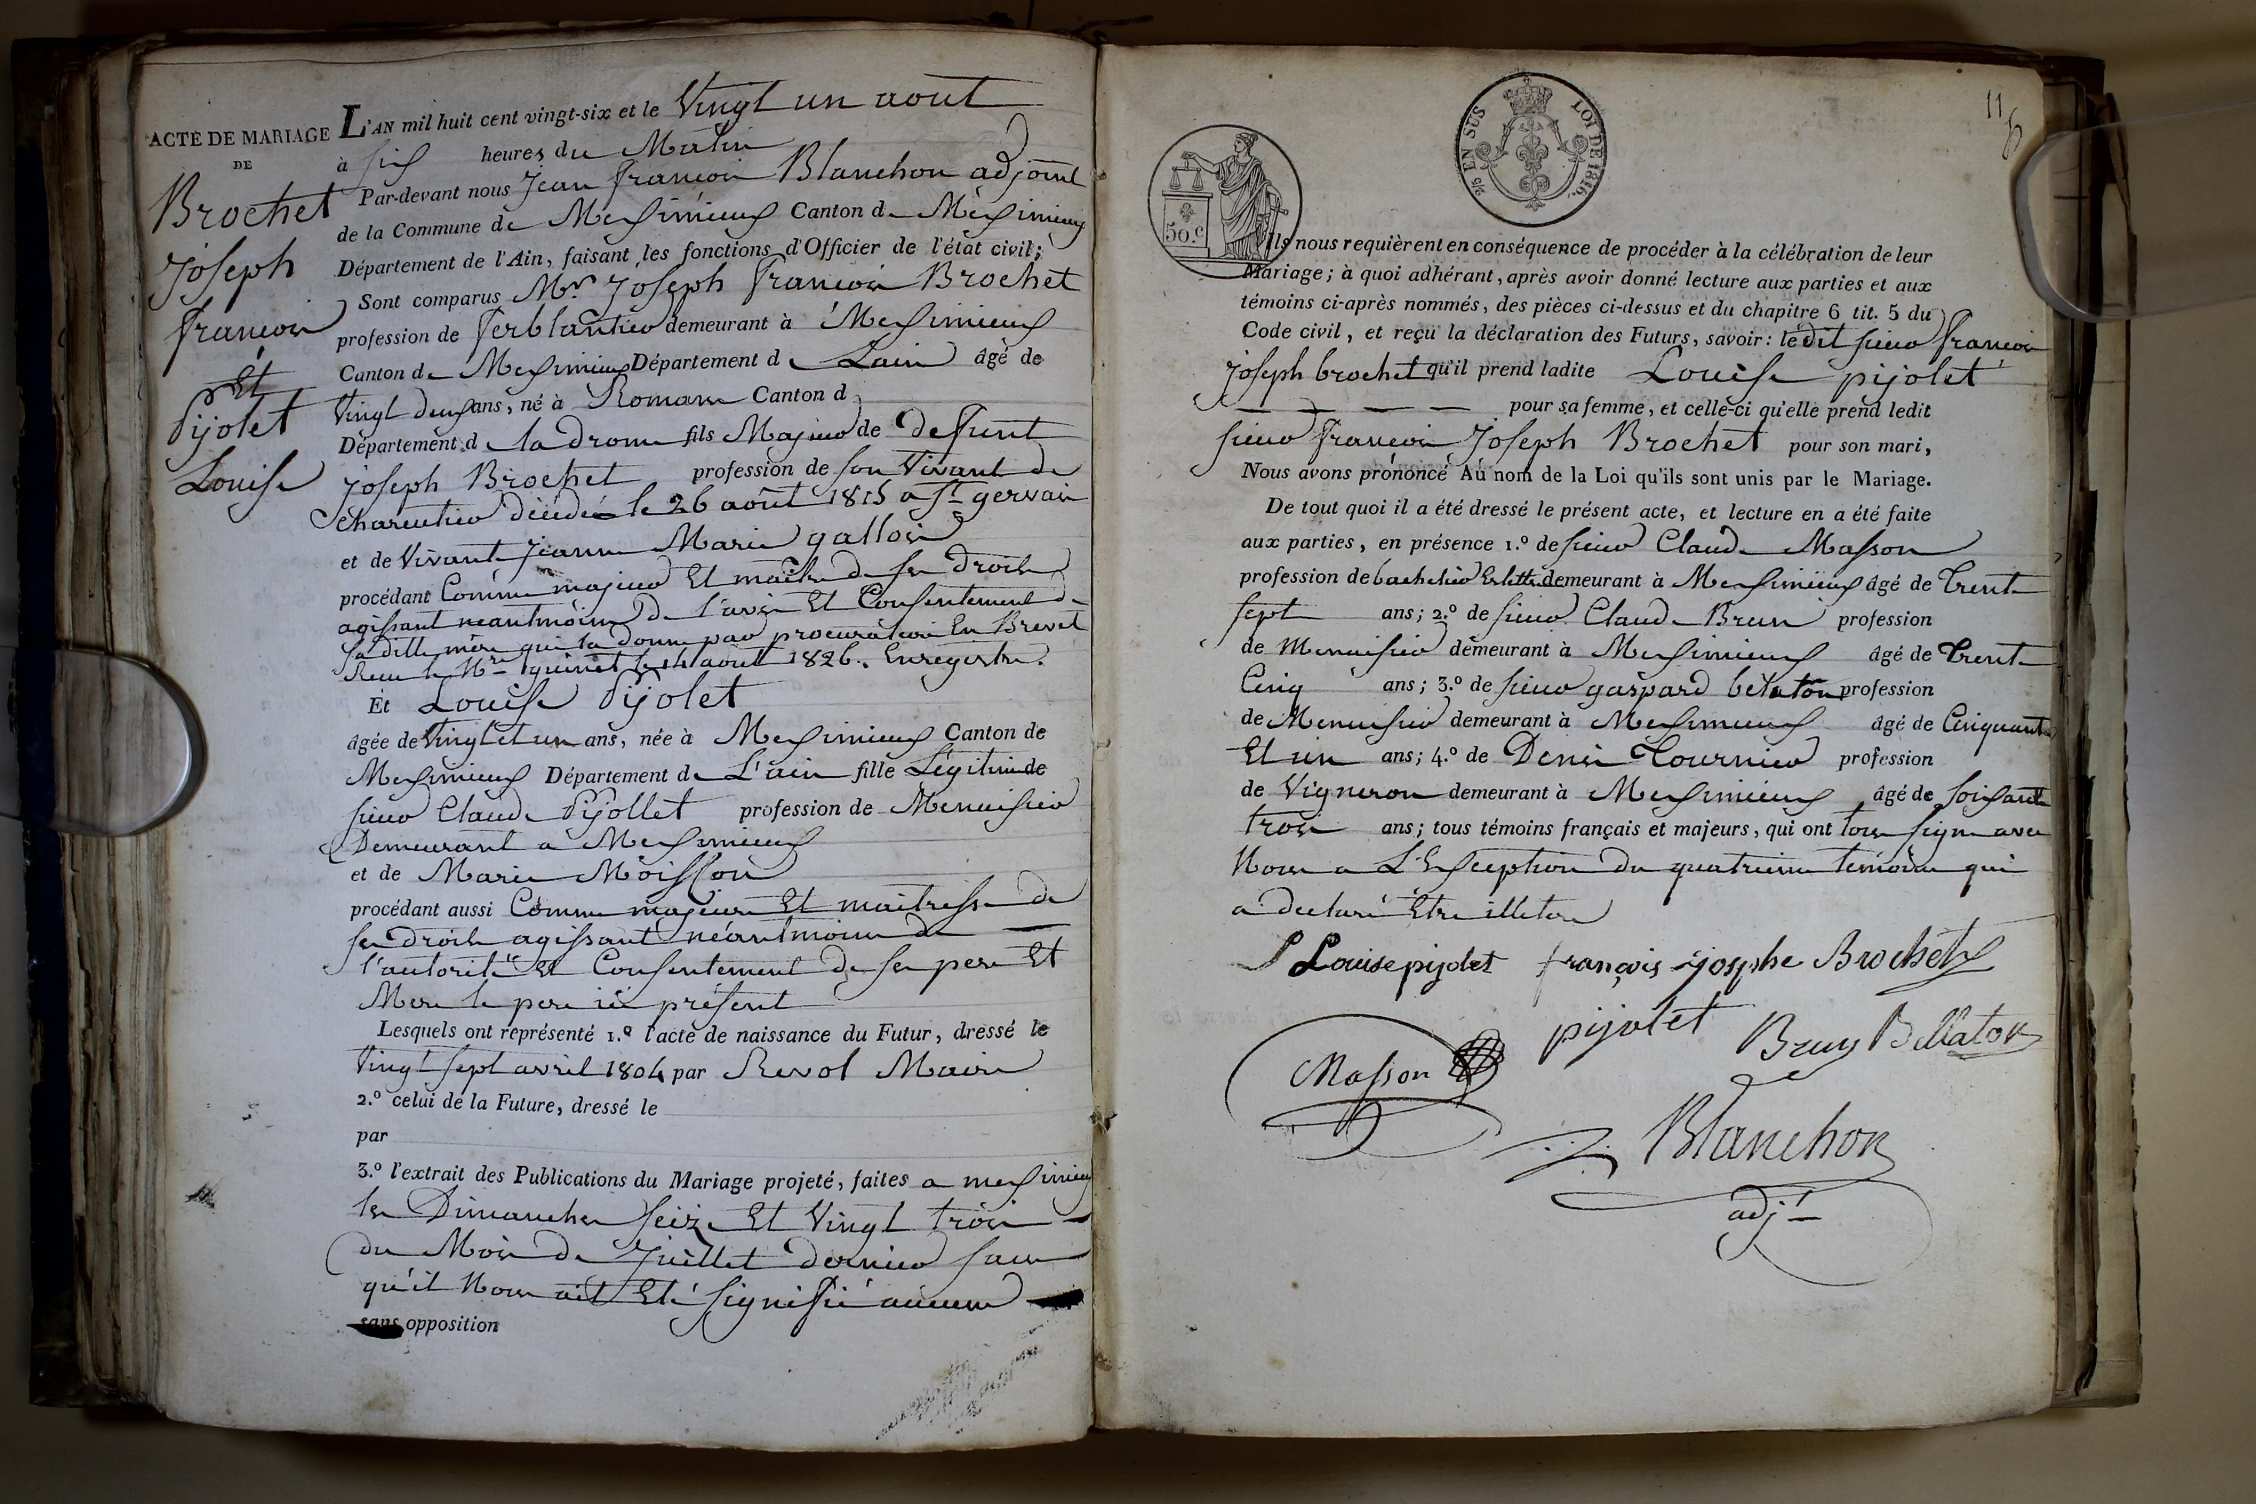 ACTE DE MARIAGE
DE
Brochet
Joseph
françois
Et
Pijolet
Louise
L'AN mil huit cent vingt-six et le Vingt un aout
à six heures du Matin
Par-devant nous Jean françois Blanchon adjoint
de la Commune de Meximieux Canton de Meximieux
Département de l'Ain, faisant les fonctions d'Officier de l'état civil;
Sont comparus Mr. Joseph françois Brochet
profession de ferblantier demeurant à Meximieux
Canton de Meximieux Département de Lain âgé de
Vingt deux ans, né à Romans Canton d
Département d la drome fils Majeur de Defunt
joseph Brochet profession de son Vivant de
charcutier décédé le 26 août 1815 a St gervais
et de Vivante Jeanne Marie gallois
procédant Comme majeur Et maitre de ses Droits
agissant neantmoins De l'avis Et Consentement de
sa dille mère qui la donne par procuration En Brevet
Recue le Mre guinet le 14 août 1826. Enregistre.
Et Louise Pijolet
âgée de Vingt et un ans, née à Meximieux Canton de
Meximieux Département de L'ain fille Légitime de
sieur Claude Pijollet profession de Menuisier
Demeurant a Meximieux
et de Marie Moisson
procédant aussi Comme majeure Et maitresse de
ses droits agissant néantmoins de
l'autorité Et Consentement de ses pere Et
Mere le pere ici présent
Lesquels ont représenté 1.º l'acte de naissance du Futur, dressé le
Vingt sept avril 1804 par Revol Maire
2.º celui de la Future, dressé le
par
3.º l'extrait des Publications du Mariage projeté, faites a meximieux
les Dimanches seize Et Vingt trois
du Mois de Juillet dernier sans
qu'il Nous ait Eté signifié aucune
sans opposition
11
6
EN SUS LOI DE 1816.
50.c
Ils nous requièrent en conséquence de procéder à la célébration de leur
Mariage; à quoi adhérant, après avoir donné lecture aux parties et aux
témoins ci-après nommés, des pièces ci-dessus et du chapitre 6 tit. 5 du
Code civil, et reçu la déclaration des Futurs, savoir: ledit sieur françois
joseph brochet qu'il prend ladite Louise pijolet
pour sa femme, et celle-ci qu'elle prend ledit
sieur françois Joseph Brochet pour son mari,
Nous avons prononcé Au nom de la Loi qu'ils sont unis par le Mariage.
De tout quoi il a été dressé le présent acte, et lecture en a été faite
aux parties, en présence 1.º de sieur Claude Masson
profession de bachelier Es lettre demeurant à Meximieux âgé de Trente
sept ans; 2.º de sieur Claude Brun profession
de Menuisier demeurant à Meximieux âgé de Trente
Cinq ans; 3.º de sieur gaspard belaton profession
de Menuisier demeurant à Meximieux âgé de Cinquante
Et un ans; 4.º de Denis Tournier profession
de Vigneron demeurant à Meximieux âgé de soixante
trois ans; tous témoins français et majeurs, qui ont tous signe avec
Nous a L'Exception du quatrieme temoin qui
a declaré Etre illetre
Louise pijolet françois josphe Brochet
pijolet Brun Bellaton
Masson
Blanchon
adjt